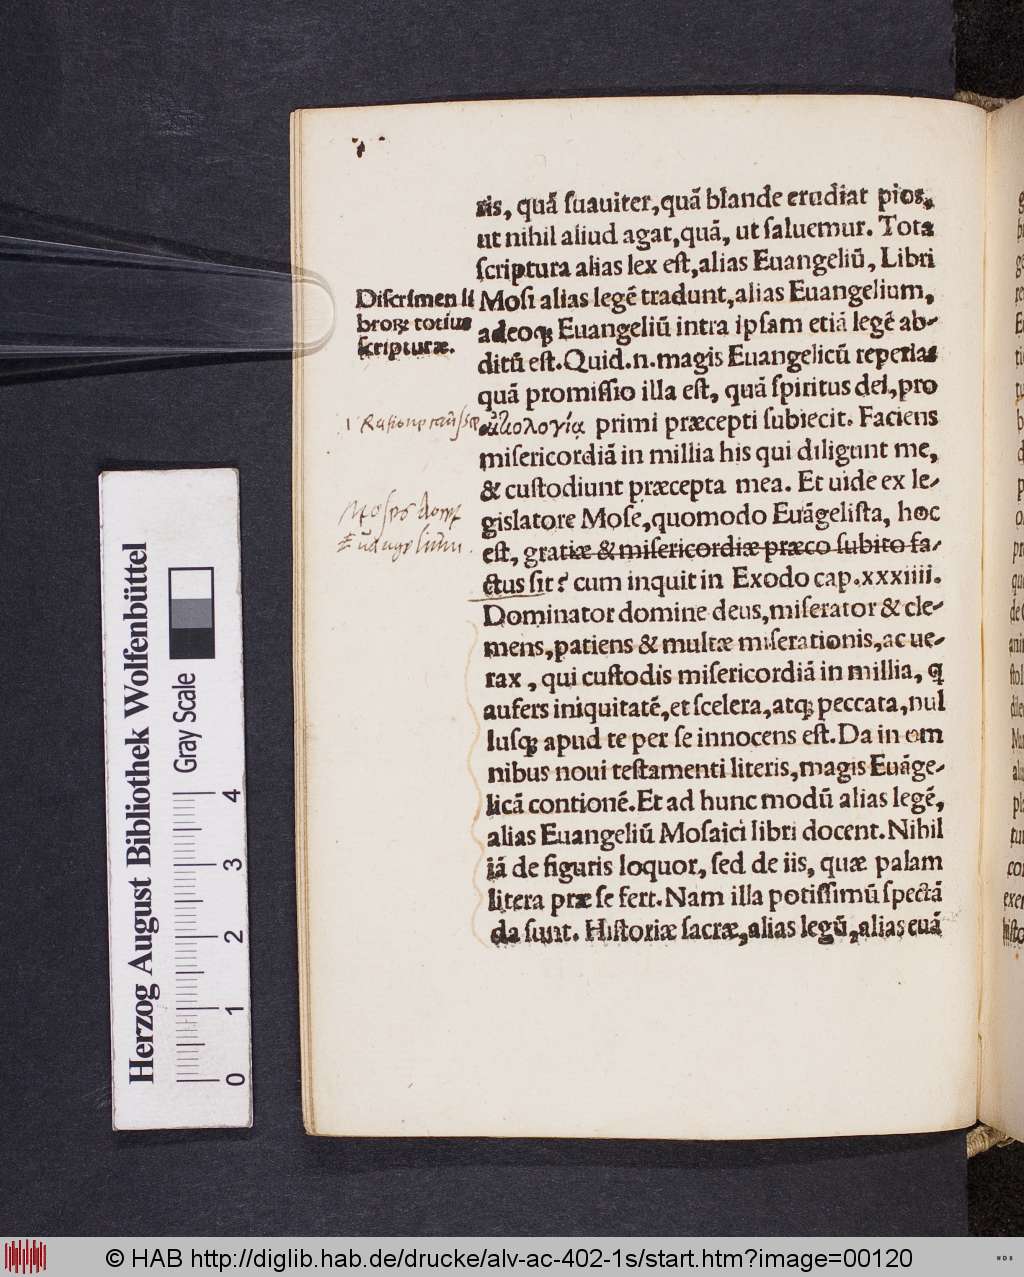 ris, quā ſuauiter, quā blande erudiat pios,
ut nihil aliud agat, quā, ut ſaluemur. Tota
ſcriptura alias lex eſt, alias Euangeliū, Libri
Moſi alias legē tradunt, alias Euangelium,
adeoqꝫ Euangeliū intra ipſam etiā legē ab-
ditū eſt. Quid .n. magis Euangelicū reperias
quā promiſſio illa eſt, quā ſpiritus dei, pro
primi præcepti ſubiecit. Faciens
miſericordiā in millia his qui diligunt me,
& cuſtodiunt præcepta mea. Et uide ex le-
gislatore Moſe, quomodo Euāgeliſta, hoc
eſt, gratiæ & miſericordiæ præco ſubito fa-
ctus ſit? cum inquit in Exodo cap. xxxiiii.
Dominator domine deus, miſerator & cle-
mens, patiens & multæ miſerationis, ac ue-
rax, qui cuſtodis miſericordiā in millia, q
aufers iniquitatē, et ſcelera, atqꝫ peccata, nul
luſqꝫ apud te per ſe innocens eſt. Da in om
nibus noui teſtamenti literis, magis Euāge-
licā contionē. Et ad hunc modū alias legē,
alias Euangeliū Moſaici libri docent. Nihil
iā de figuris loquor, ſed de iis, quæ palam
litera præ ſe fert. Nam illa potiſſimū ſpectā
da ſunt. Hiſtoriæ ſacræ, alias legū, alias euā
Diſcrimen li
broꝝ totius
ſcripturæ.
Euangelium.
Herzog August Bibliothek Wolfenbüttel
Gray Scale
0 1 2 3 4
© HAB http://diglib.hab.de/drucke/alv-ac-402-1s/start.htm?image=00120